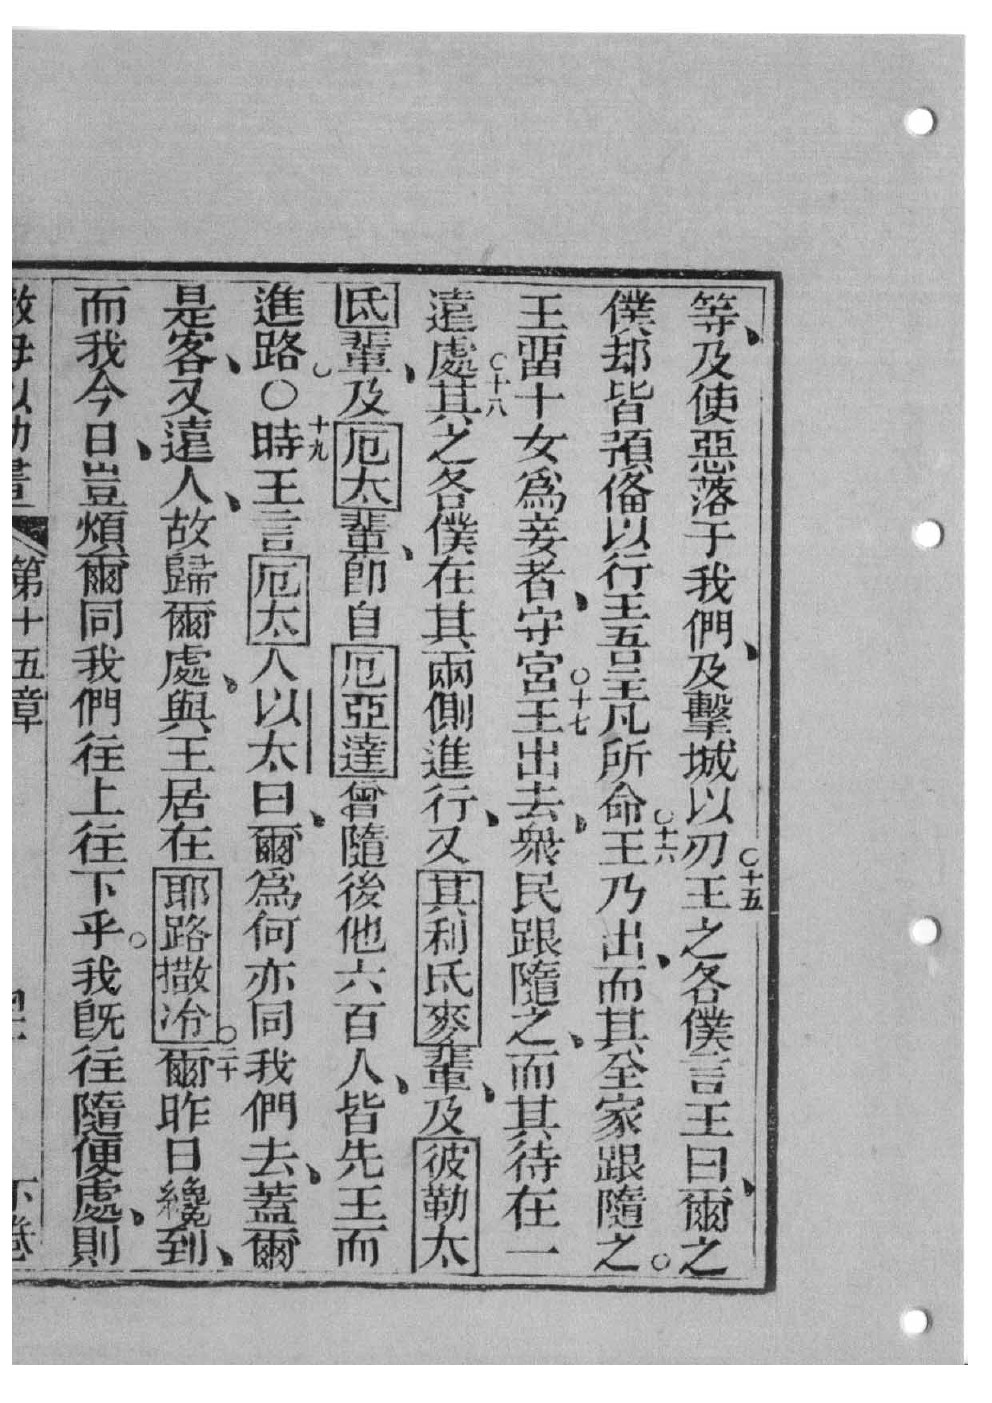 等、及使惡落于我們、及擊城以刃○十五王之各僕言王曰、爾之
僕却皆預俻以行王吾呈凡所命○十六王乃出、而其全家跟隨之。
王畱十女爲妾者、守宮○十七王出去、衆民跟隨之、而其待在一
遠處○十八其之各僕在其兩側進行、又其利氐麥輩、及彼勒太
氐輩、及厄太輩、卽自厄亞達曾隨後他六百人、皆先王而
進路。○十九時王言厄太人以太曰、爾爲何亦同我們去、蓋爾
是客、又遠人、故歸爾處、與王居在耶路撒冷○二十爾昨日纔到、
而我今日、豈煩爾同我們往上往下乎。我旣往隨便處、則
第十五章
下卷